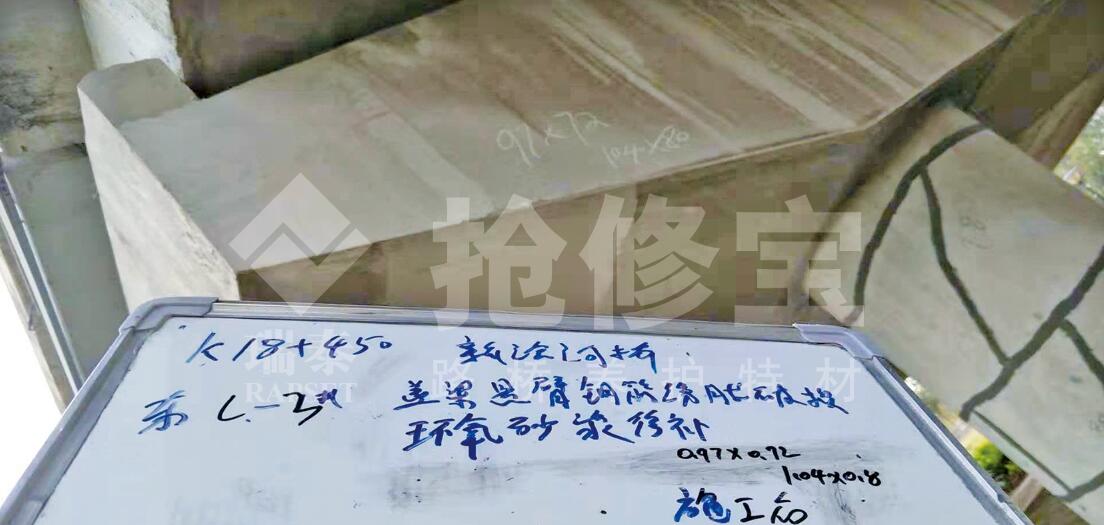 97×72
104×80
抢修宝
瑞泰
RAPSET
路桥养护特材
K18+450
东 L-3
盖梁悬臂钢筋锈胀破损
环氧砂浆修补
0.97×0.72
1.04×0.8
施工前